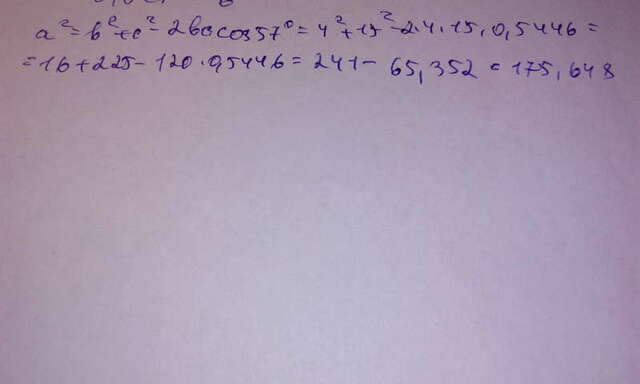 a² = b² + c² - 2bc cos 57° = 4² + 15² - 2·4·15·0,5446 =
= 16 + 225 - 120·0,5446 = 241 - 65,352 = 175,648